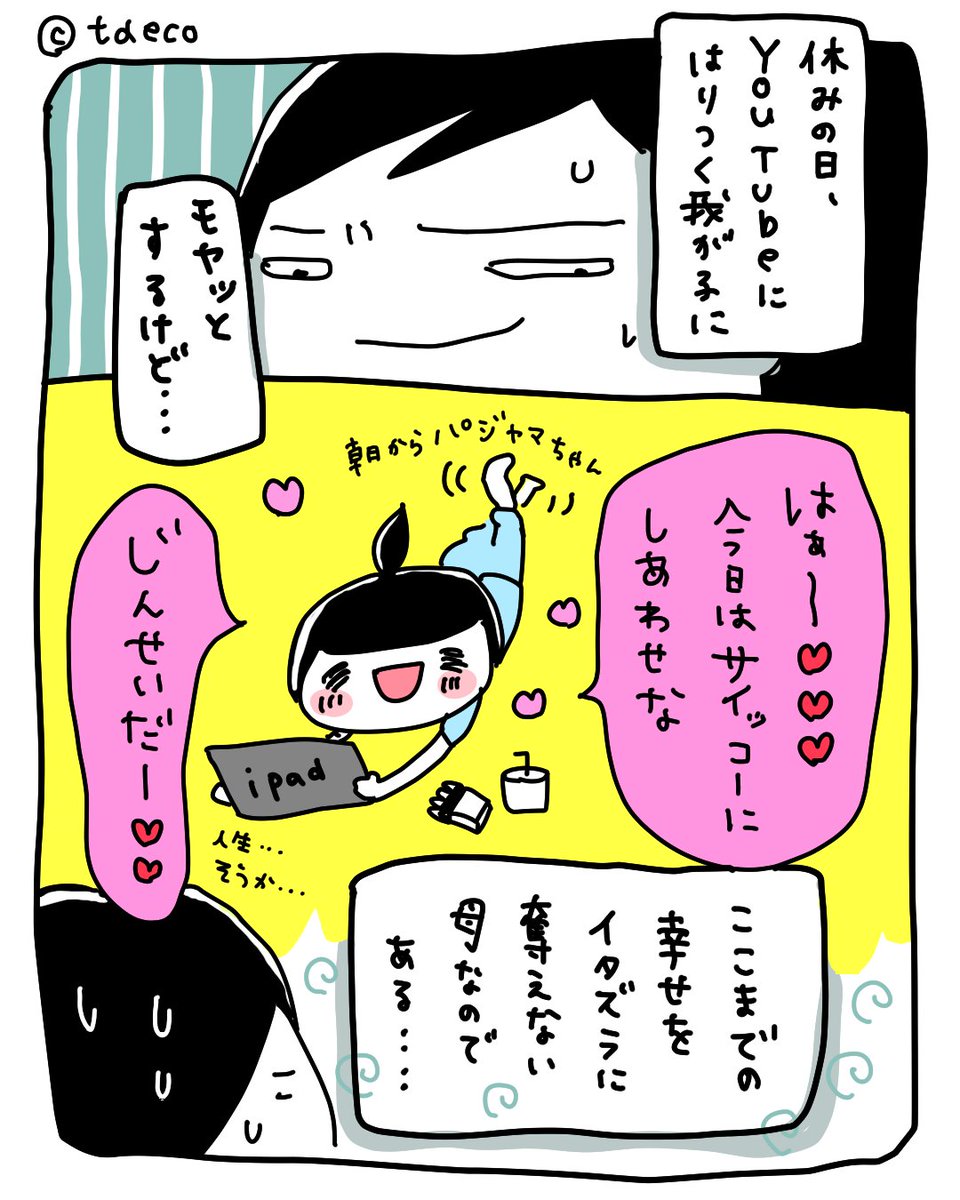 © tdeco
休みの日、
YouTubeに
はりつく我が子に
モヤッと
するけど…
朝からパジャマちゃん
はぁ〜
今日はサイッコーに
しあわせな
じんせいだー
ipad
人生…
そうか…
ここまでの
幸せを
イタズラに
奪えない
母なので
ある‥‥